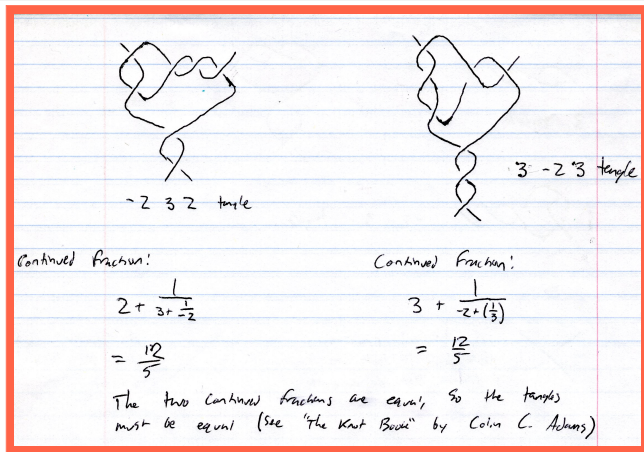 -2 3 2 tangle
3 -2 3 tangle
Continued fraction:
2 + 1/(3 + 1/-2)
= 12/5
Continued Fraction:
3 + 1/(-2 + (1/3))
= 12/5
The two continued fractions are equal, so the tangles
must be equal (see "The Knot Book" by Colin C. Adams)